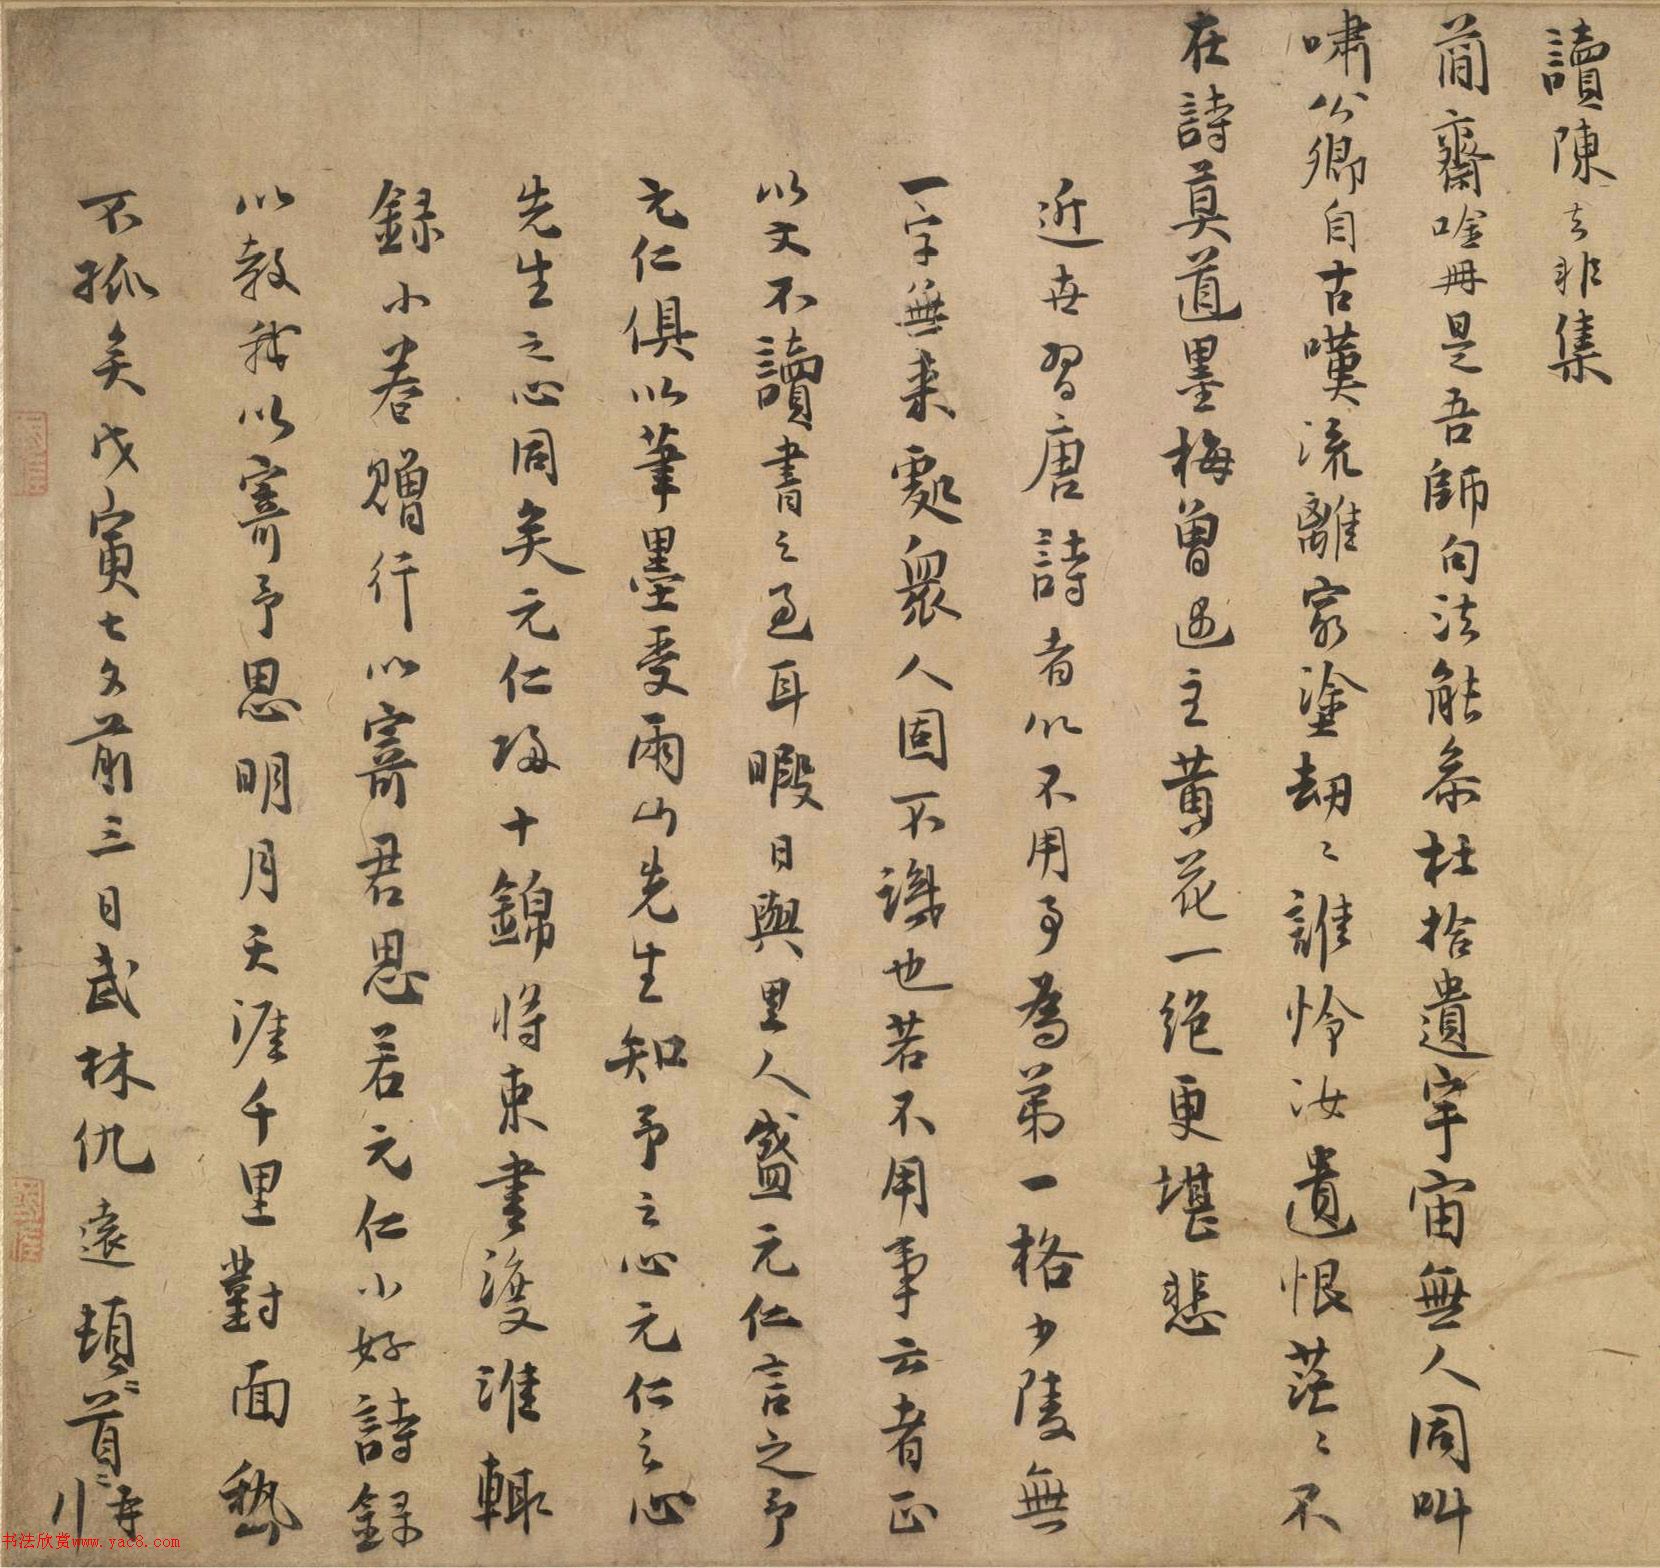 讀陳去非集
簡齋唫冊是吾師句法能參杜拾遺宇宙無人同叫
嘯公卿自古嘆流離窮塗劫〻誰怜汝遺恨茫〻不
在詩莫道墨梅曾遇主黃花一絕更堪悲
近世習唐詩者以不用事為第一格少陵無
一字無来處眾人固不識也若不用事云者正
以文不讀書之過耳暇日與里人盛元仁言之予
元仁俱以筆墨受雨山先生知予之心元仁之心
先生之心同矣元仁歸十錦將束書渡淮輒
録小卷贈行以寄君思若元仁小好詩録
以教我以寄予思明月天涯千里對面
不孤矣戊寅七夕前三日武林仇遠頓〻首〻再拜
书法欣赏www.yac8.com